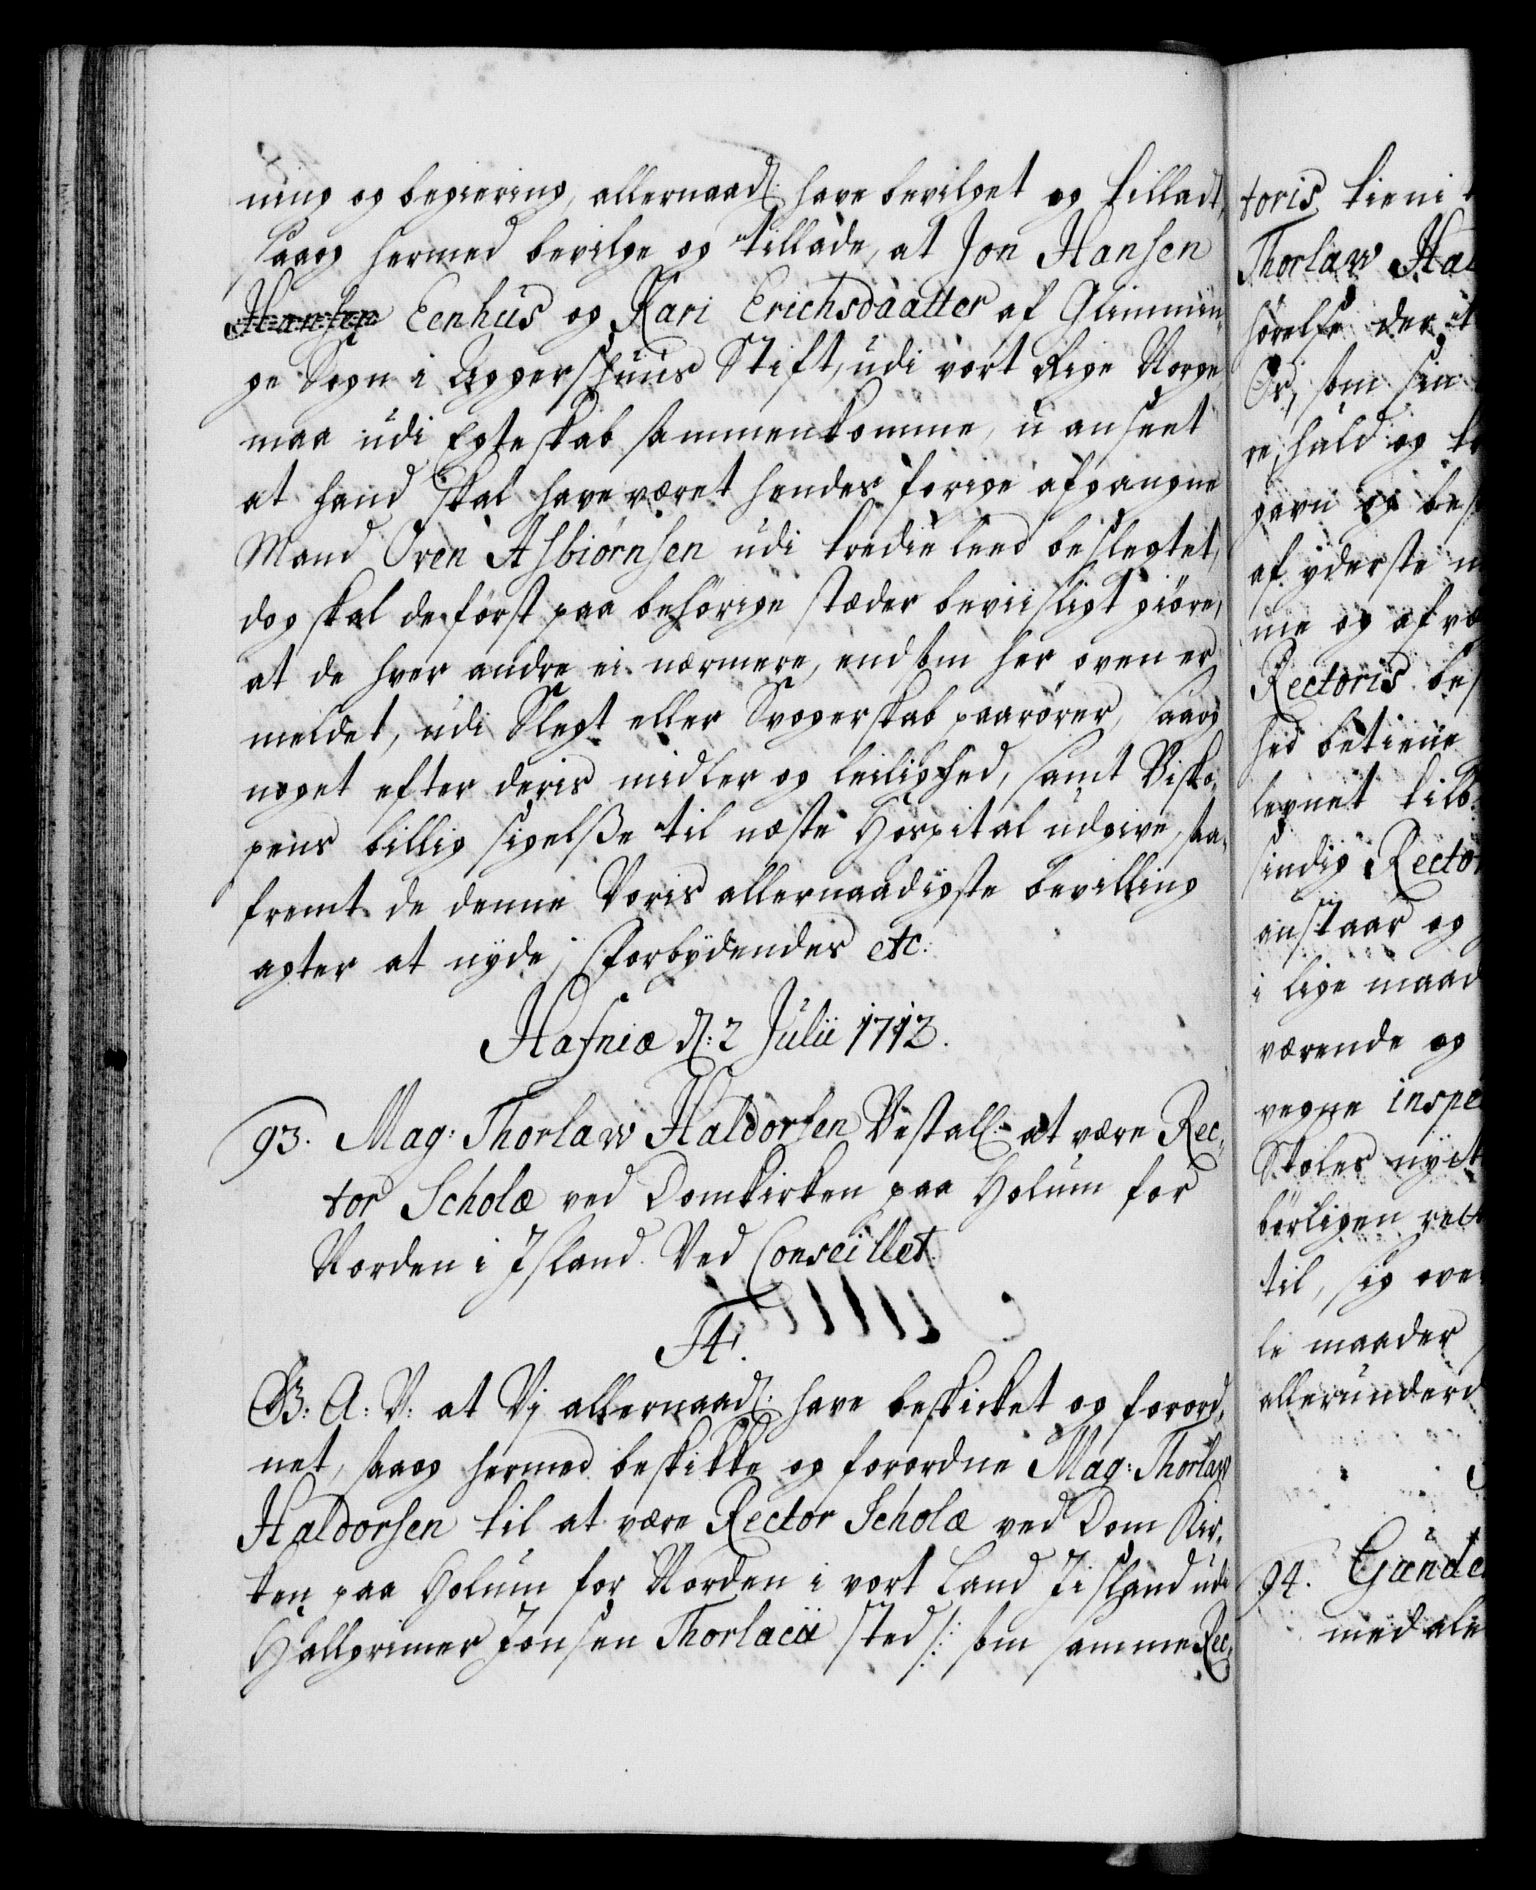 ning og begiering, allernaadl: have bevilget og tilladt,
saaog hermed bevilge og tillade, at Jon Hansen
Hansen Eenhus og Kari Erichsdaatter af Glemmin-
ge Sogn i Aggershuus Stift, udi vort Rige Norge
maa udi Egteskab sammenkomme, u anseet
at hand skal have været hendes forige afgangne
Mand Oven Asbiørnsen udi tredie leed beslegtet,
dog skal de først paa behörige stæder beviisligt giøre,
at de hver andre ei nærmere, end som her oven er
meldet, udi Slegt eller Svogerskab paarörer, saaog
noget efter deris midler og leilighed, samt Bisko-
pens billig sigelsse til næste Hospital udgive, saa-
fremt de denne Voris allernaadigste bevilling
agter at nyde, Forbydendes etc:
Hafniæ d: 2 Julii 1713.
93. Mag: Thorlaw Haldorsen Bestall: at være Rec-
tor Scholæ ved Domkirken paa Holum for
Norden i Island. Ved Conseillet.
F4.
G: A: V: at Vj allernaadl: have beskicket og forord-
net, saaog hermed beskikke og forordne Mag: Thorlaw
Haldorsen til at være Rector Scholæ ved Dom Kir-
ken paa Holum for Norden i vort Land Jisland udi
Hallgrimer Jonsen Thorlacii sted /: som samme Rec-
toris tieni
Thorlaw Hal
hørelse der
Or, som sin
re, huld og
gavn og bes
af yderste
me og af
Rectoris
hed betiene
legnet
sindig Rector
anstaar og
i lige maad
værende og
vegne inspe
Skoles
börligen
til, sig
le maader
allerunderd
94. Gunde
med